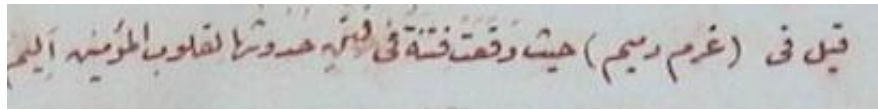 قيل فى (غرم وميم) حيث وقعت فتنة فى حدوثها لقلوب المؤمنين اليم